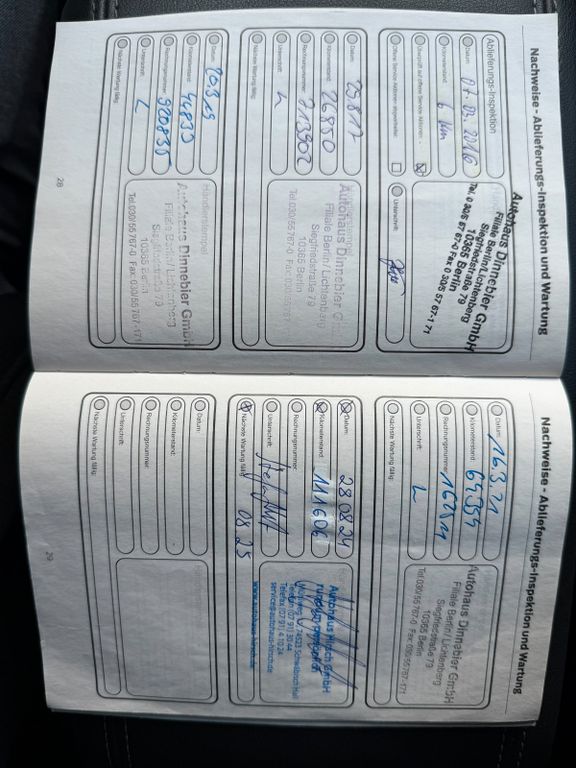 Nachweise - Ablieferungs-Inspektion und Wartung
Ablieferungs-Inspektion
Datum: 07.03.2016
Kilometerstand: 6 km
Überprüft auf offene Service-Aktionen:
Offene Service-Aktionen abgearbeitet:
Unterschrift:
Autohaus Dinnebier GmbH
Filiale Berlin/Lichtenberg
Siegfriedstraße 79
10365 Berlin
Tel. 0 30/5 57 67-0 Fax 0 30/5 57 67-1 71
Datum: 25.8.17
Kilometerstand: 26850
Rechnungsnummer: 713902
Unterschrift:
Nächste Wartung fällig:
Autohaus Dinnebier GmbH
Filiale Berlin/Lichtenberg
Siegfriedstraße 79
10365 Berlin
Tel.030/55 767-0 Fax 030/55 767
Datum:
Kilometerstand: 44833
Rechnungsnummer: 920835
Unterschrift:
Nächste Wartung fällig:
Händlerstempel
Autohaus Dinnebier GmbH
Filiale Berlin/Lichtenberg
Siegfriedstraße 79
10365 Berlin
Tel.030/55 767-0 Fax 030/55 767-171
28
Nachweise - Ablieferungs-Inspektion und Wartung
Datum: 16.3.21
Kilometerstand: 64354
Rechnungsnummer:
Unterschrift:
Nächste Wartung fällig:
Autohaus Dinnebier GmbH
Filiale Berlin/Lichtenberg
Siegfriedstraße 79
10365 Berlin
Tel.030/55 767-0 Fax 030/55 767-171
Datum: 28.08.24
Kilometerstand: 111606
Rechnungsnummer:
Unterschrift:
Nächste Wartung fällig: 08.25
Autohaus Hirsch GmbH
74523 Schwäbisch Hall
Telefon (07 91) 30 44
Telefax (07 91) 4 10 24
service@autohaus-hirsch.de
www.autohaus-hirsch.de
Datum:
Kilometerstand:
Rechnungsnummer:
Unterschrift:
Nächste Wartung fällig:
29